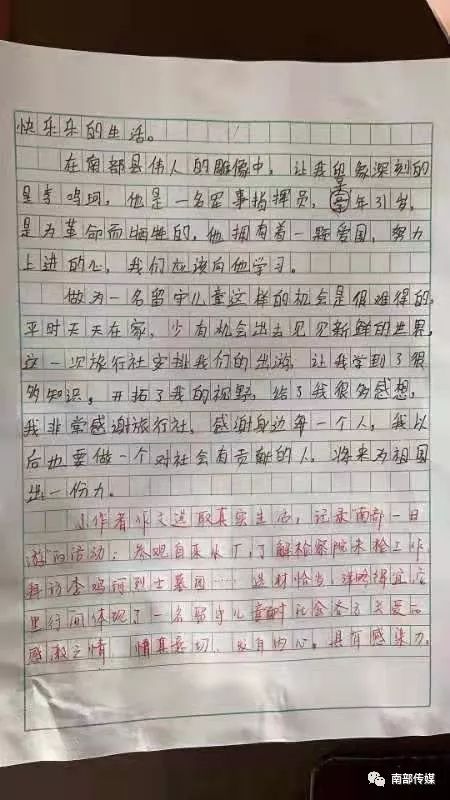 快乐乐的生活。
在南部县伟人的雕像中,让我印象深刻的
是李鸣珂,他是一名军事指挥员,享年31岁,
是为革命而牺牲的,他拥有着一颗爱国,努力
上进的心,我们应该向他学习。
做为一名留守儿童这样的机会是很难得的,
平时天天在家,少有机会出去见见新鲜的世界,
这一次旅行社安排我们的出游,让我学到了很
多知识,开拓了我的视野,给了我很多感想,
我非常感谢旅行社,感谢身边每一个人,我以
后也要做一个对社会有贡献的人,将来为祖国
出一份力。
小作者作文选取真实生活,记录"南部一日
游"的活动:参观自来水厂,了解检察院未检工作,
拜访李鸣珂烈士墓园……选材恰当,详略得宜,字
里行间体现了一名留守儿童对社会各方关爱的
感激之情,情真意切,发自内心,具有感染力。
南部传媒